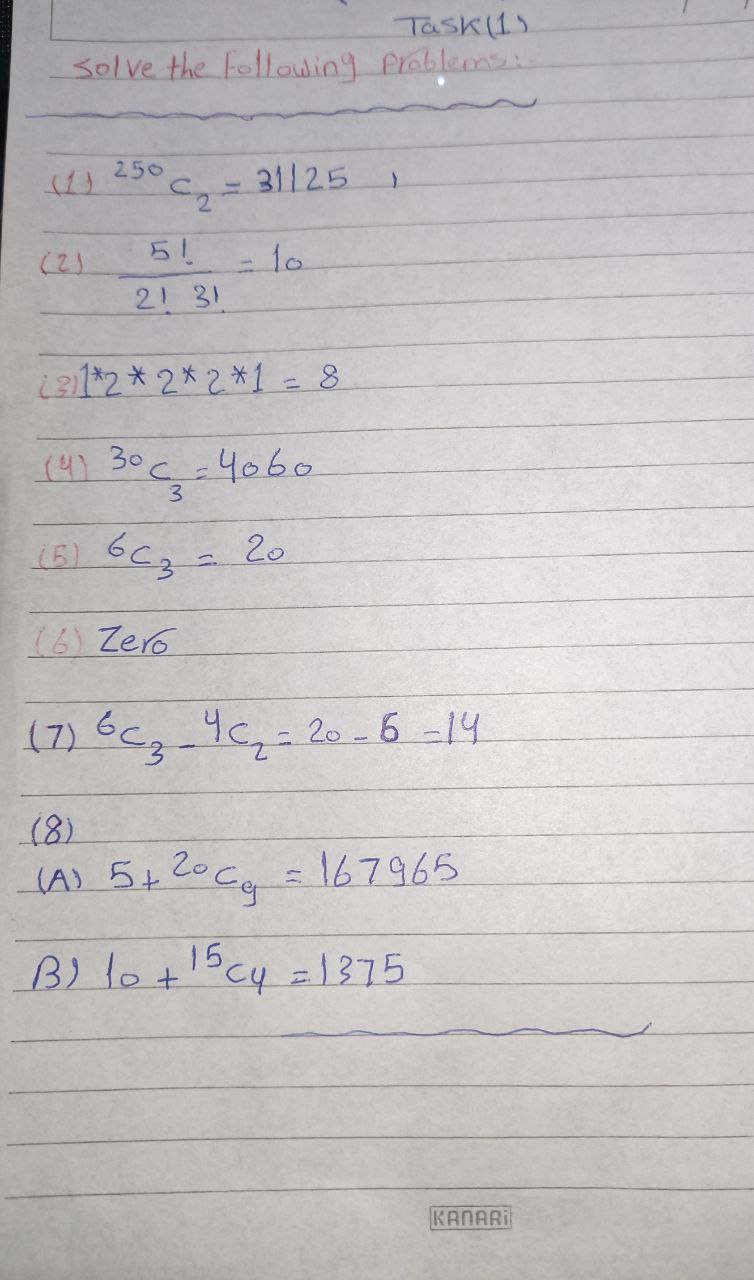 Task(1)
Solve the Following Problems:-
(1) ²⁵⁰C₂ = 31125
(2) 5! / 2! 3! = 10
(3) 1*2*2*2*1 = 8
(4) ³⁰C₃ = 4060
(5) ⁶C₃ = 20
(6) Zero
(7) ⁶C₃ - ⁴C₂ = 20 - 6 = 14
(8)
(A) 5 + ²⁰C₉ = 167965
B) 10 + ¹⁵C₄ = 1375
KANARi